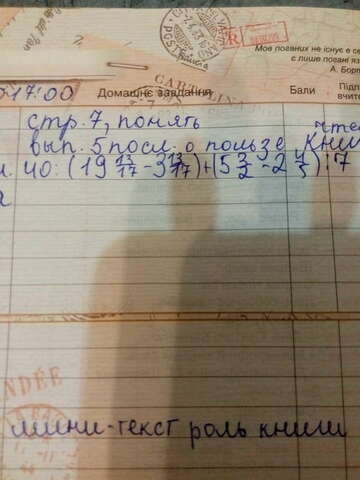 Моє поганих не існує в се
є лише погані яз
А. Борг
17:00
Домашнє завдання
Бали
Підп
вчите
CAROLINA
стр. 7, понять
вып. 5 посл. о пользе чте
книг
40: (19 13/17 - 3 13/17) + (5 3/2 - 2 4/5) : 7
NDÉE
мини-текст роль книги